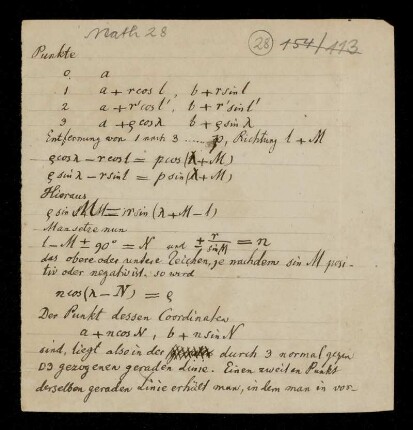 Math 28
28 154/113
Punkte
0. a
1 a + r cos l, b + r sin l
2 a + r' cos l', b + r' sin l'
3 a + ρ cos λ, b + ρ sin λ
Entfernung von 1 nach 3 ...... p, Richtung l + M
ρ cos λ − r cos l = p cos (l + M)
ρ sin λ − r sin l = p sin (l + M)
Hieraus
ρ sin = r sin (λ + M − l)
Man setze nun
l − M ± 90° = N und ± r/sin M = n
das obere oder untere Zeichen, je nachdem sin M posi-
tiv oder negativ ist. so wird
n cos (λ − N) = ρ
Der Punkt dessen Coordinaten
a + n cos N, b + n sin N
sind, liegt also in der durch 3 normal gegen
03 gezogenen geraden Linie. Einen zweiten Punkt
derselben geraden Linie erhält man, in dem man in vor-